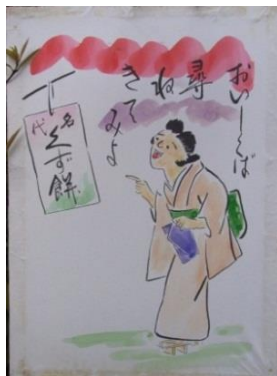 おいしくば
尋ね
きてみよ
名代
くず餅